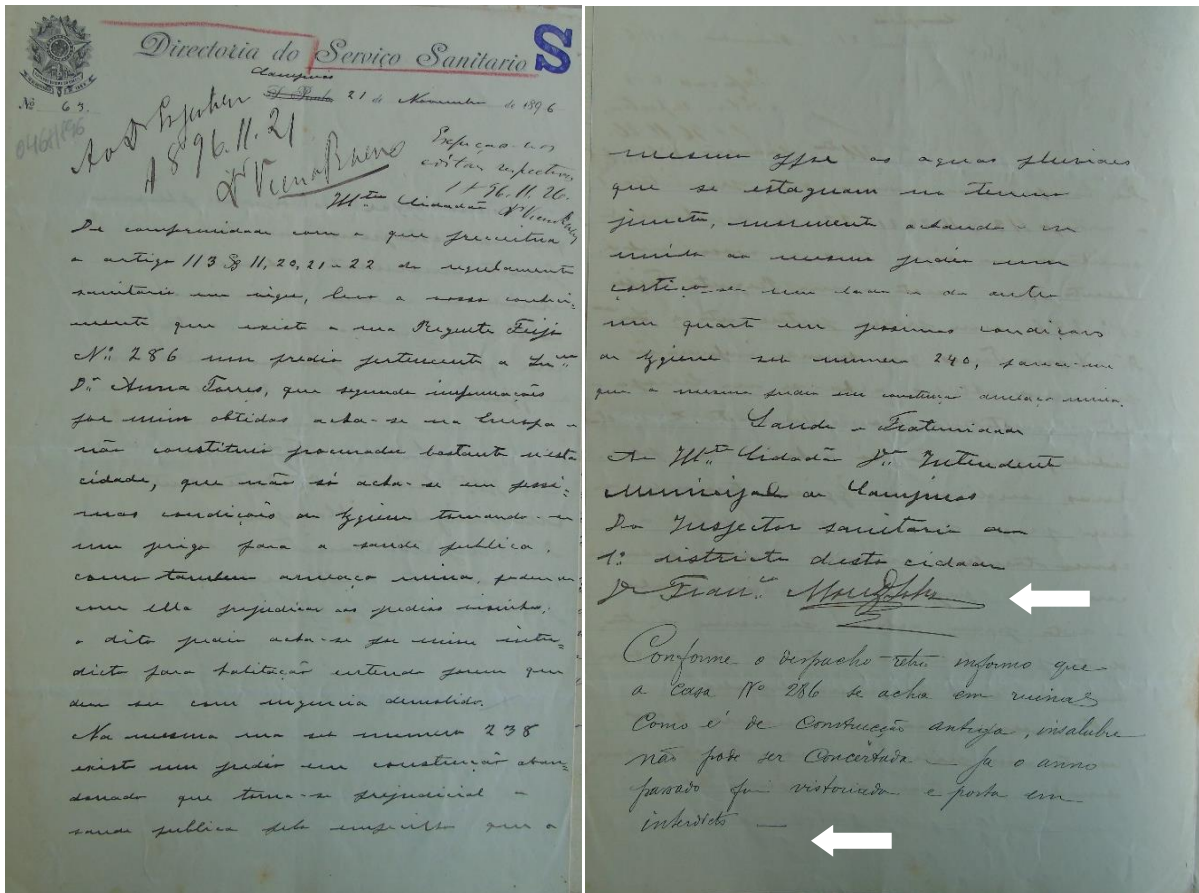 Directoria do Serviço Sanitario
S
Campinas
S. Paulo 21 de Novembro de 1896
Nº 63
Ao Dr Engenheiro
1896.11.21
Dr Vieira Bueno
Expeça-se os
editaes respectivos
1896.11.26.
Dr Vieira Bueno
Mto Cidadão
De comformidade com o que preceitua
o artigo 113 §§ 11, 20, 21 e 22 do regulamento
sanitario em vigor, levo a vosso conheci-
mento que existe a rua Regente Feijo
Nº 286 um predio pertencente a
Dª Anna Torres, que segundo informações
por mim obtidas acha-se na Europa e
não constituio procurador bastante nesta
cidade, que não só acha-se em pessi-
mas condições de hygiene tornando-se
um perigo para a saude publica,
como tambem ameaça ruina, podendo
com ella prejudicar aos predios visinhos;
o dito predio acha-se por mim inter-
dicto para habitação entendo porem que
deve ser com urgencia demolido.
Na mesma rua sob numero 238
existe um predio em construcção aban-
donado que torna-se prejudicial a
saude publica pelo empecilho que o
mesmo offe as aguas pluviaes
que se estagnam no terreno
juncto, mormente achando-se
unido ao mesmo predio um
cortiço de um lado e do outro
um quarto em pessimas condições
de hygiene sob numero 240, parece-me
que o mesmo predio em construcção ameaça ruina.
Saude e Fraternidade
Ao Mto Cidadão Dr. Intendente
Municipal de Campinas
Do Inspector sanitario do
1º districto desta cidade
Dr Franco
Conforme o despacho retro informo que
a casa Nº 286 se acha em ruinas
Como é de Construcção antiga, insalubre
não pode ser Concertada — Ja o anno
passado foi vistoriada e posta em
interdicto —